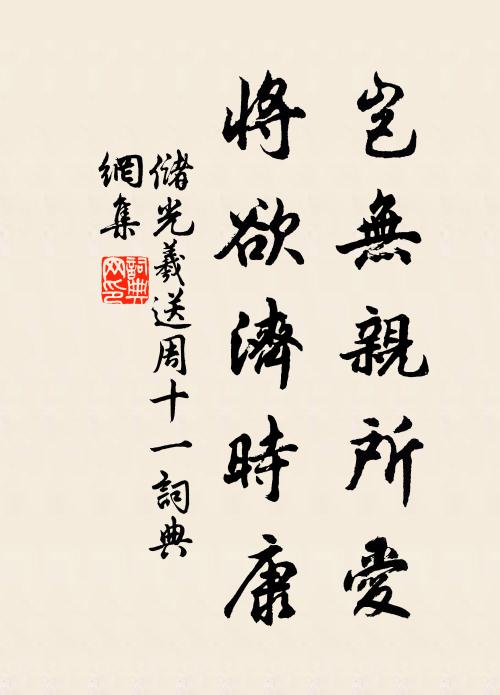 豈無親所愛
將欲濟時康
儲光羲送周十一詞典
網集
詞典網印